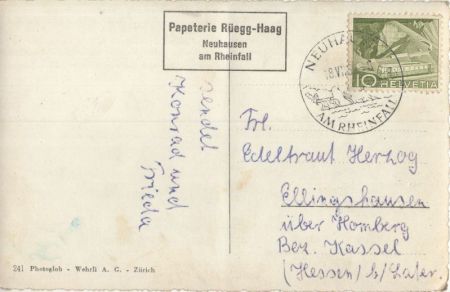 Papeterie Rüegg-Haag
Neuhausen
am Rheinfall
NEUHAUSEN
AM RHEINFALL
10
HELVETIA
sendet
Konrad und
Frieda
Frl.
Edeltraut Herzog
Ellingshausen
über Homberg
Bez. Kassel
(Hessen)
241 Photoglob - Wehrli A. G. - Zürich